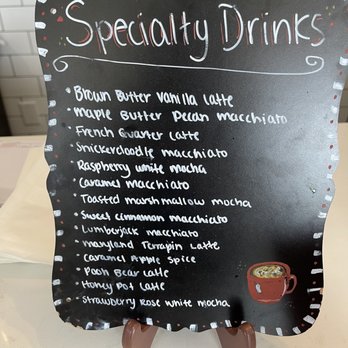 Specialty Drinks
• Brown Butter Vanilla Latte
• Maple Butter Pecan macchiato
• French Quarter Latte
• Snickerdoodle macchiato
• Raspberry white mocha
• Caramel macchiato
• Toasted marshmallow mocha
• Sweet cinnamon macchiato
• Lumberjack macchiato
• Maryland Terrapin Latte
• Caramel Apple Spice
• Pooh Bear Latte
• Honey Pot Latte
• Strawberry Rose white mocha